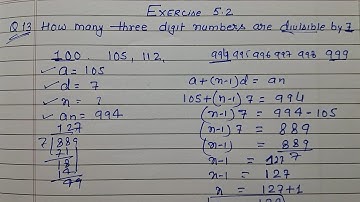 EXERCISE 5.2
Q.13 How many three digit numbers are divisible by 7
100. 105, 112, 994 995 996 997 998 999
✓ a = 105
✓ d = 7
✓ n = ?
✓ an = 994
127
7 889
71
18
14
49
a+(n-1)d = an
105+(n-1)7 = 994
(n-1)7 = 994-105
(n-1)7 = 889
(n-1) = 889
7
n-1 = 127
n-1 = 127
n = 127+1